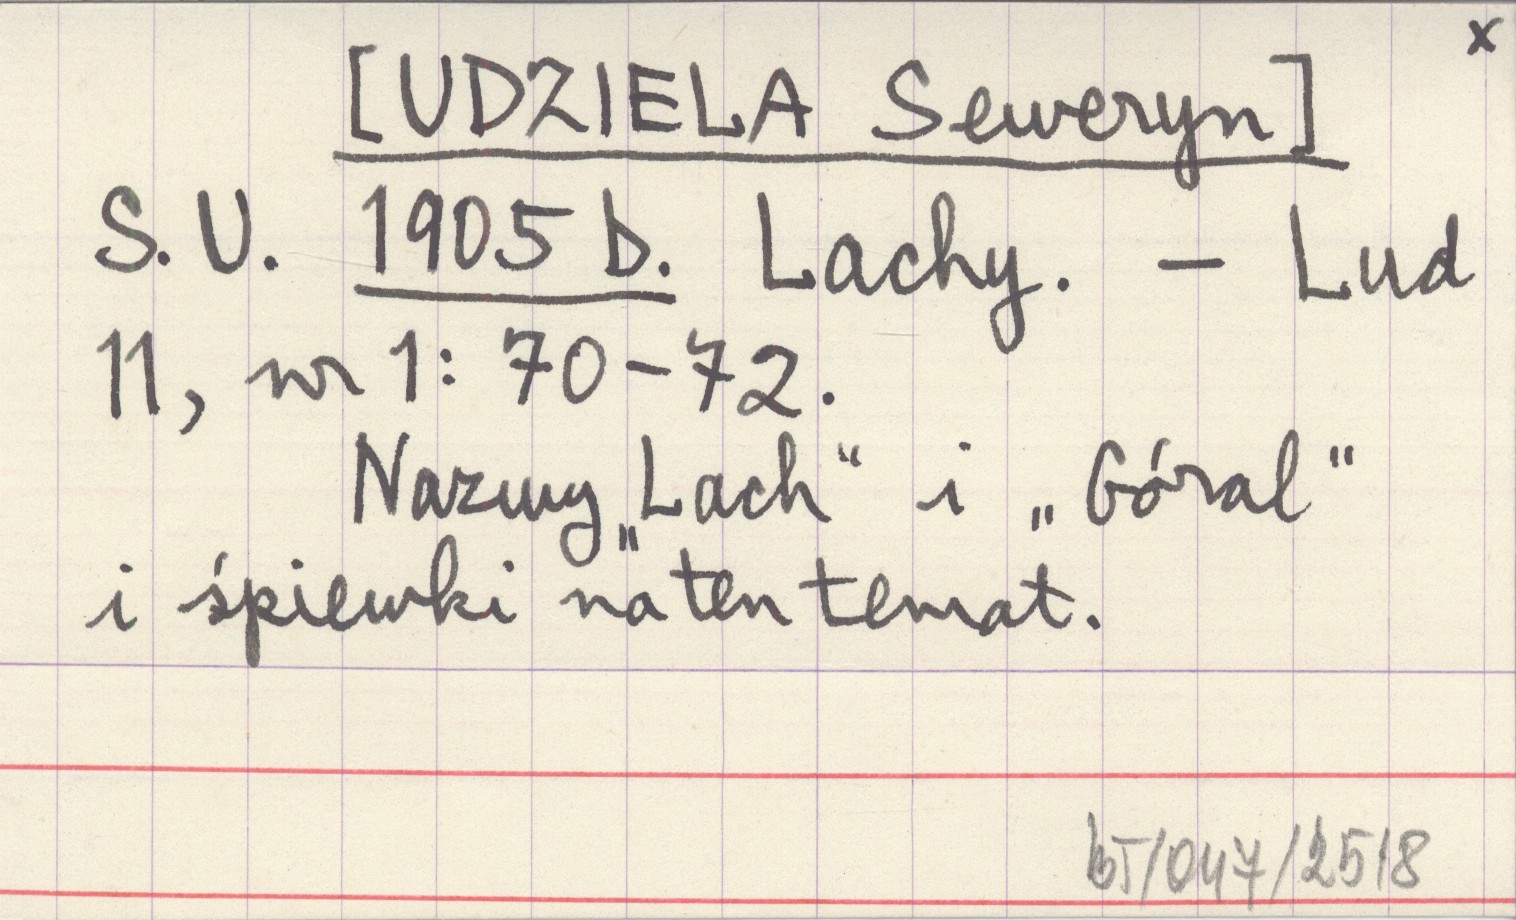 x
[UDZIELA Seweryn]
S.U. 1905 b. Lachy. – Lud
11, nr 1: 70–72.
Nazwy „Lach“ i „Góral“
i śpiewki na ten temat.
bT/047/2518